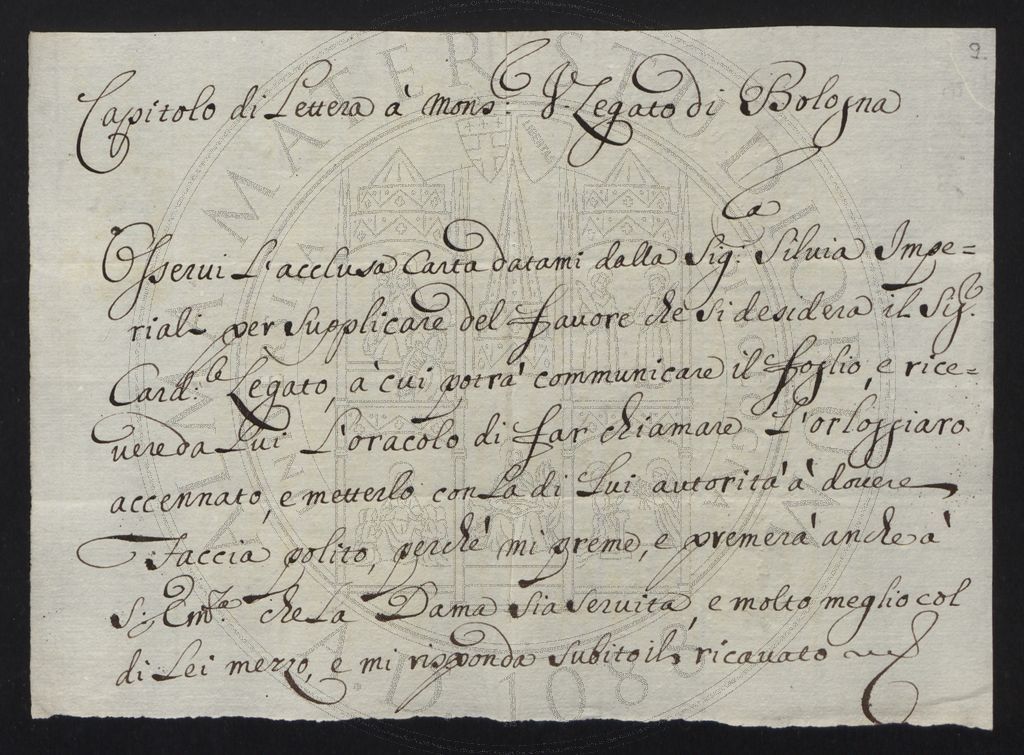 9
Capitolo di Lettera à Mons: V. Legato di Bologna
Osserui L'acclusa Carta datami dalla Sig:ra Siluia Impe=
riali per supplicare del fauore che si desidera il Sig.
Card:le Legato, à cui potrà communicare il foglio, e rice=
uere da Lui L'oracolo di far chiamare L'orloggiaro
accennato, e metterlo con La di Lui autorità à douere
Faccia polito, perchè mi preme, e premerà anche à
S: Em:za che La Dama sia seruita, e molto meglio col
di Lei mezzo, e mi risponda subito il ricauato
ALMA MATER STUDIORUM
A.D. 1088